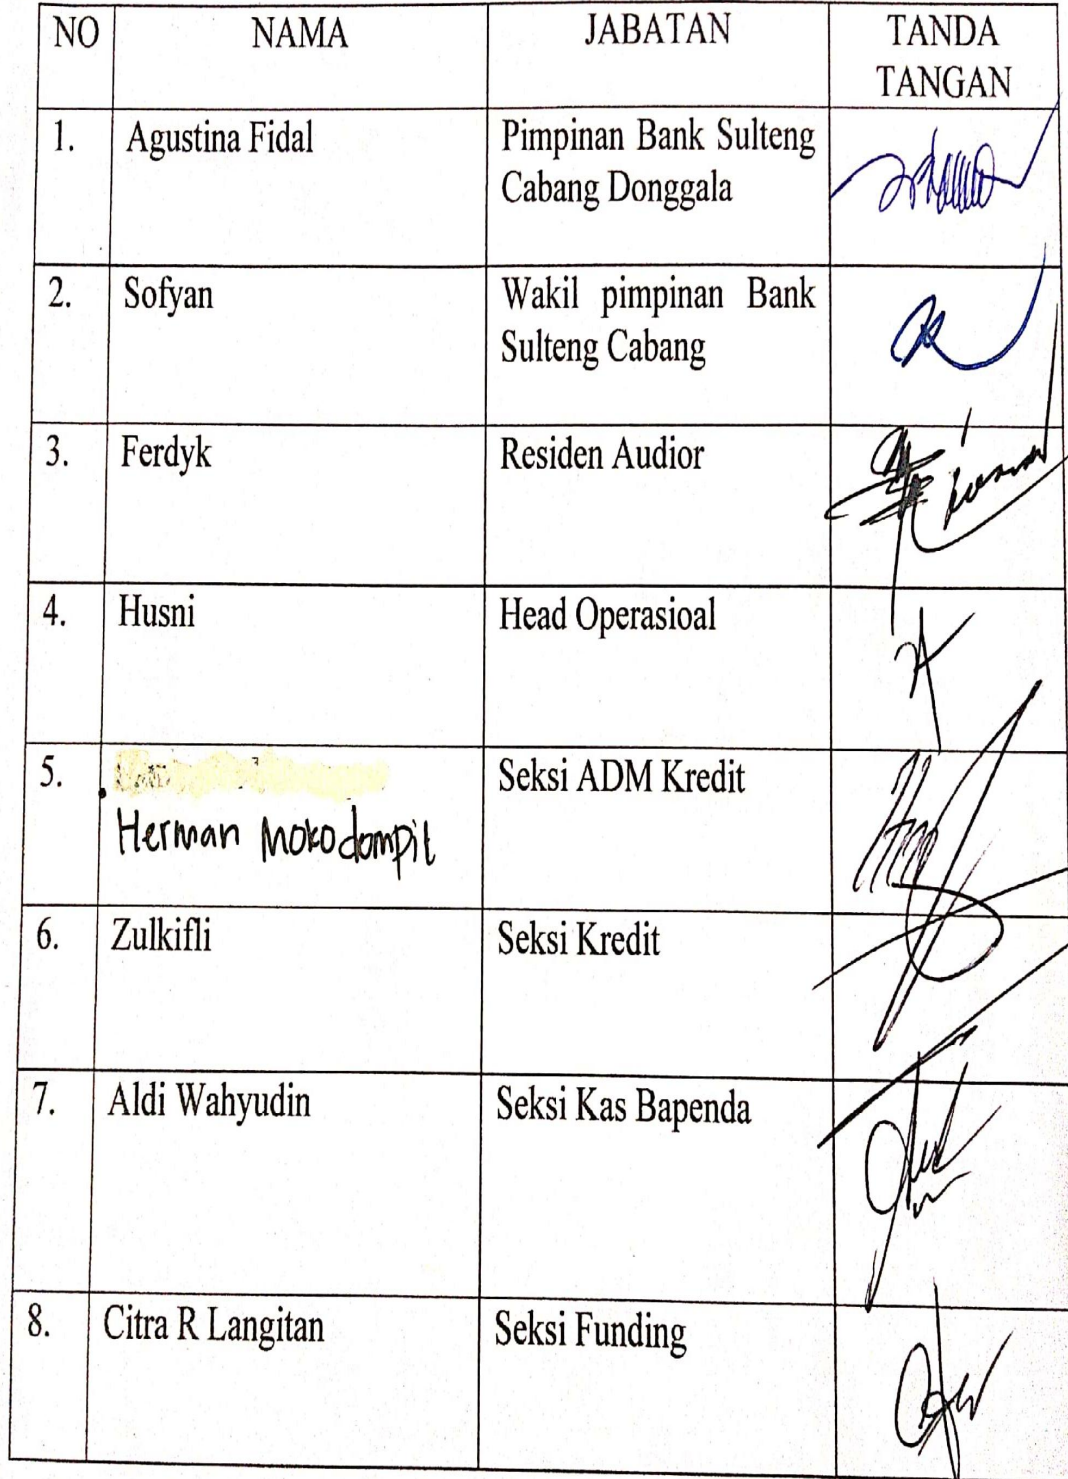 NO NAMA JABATAN TANDA
TANGAN
1. Agustina Fidal Pimpinan Bank Sulteng
Cabang Donggala
2. Sofyan Wakil pimpinan Bank
Sulteng Cabang
3. Ferdyk Residen Audior
4. Husni Head Operasioal
5. Seksi ADM Kredit
Herman Mokodompit
6. Zulkifli Seksi Kredit
7. Aldi Wahyudin Seksi Kas Bapenda
8. Citra R Langitan Seksi Funding